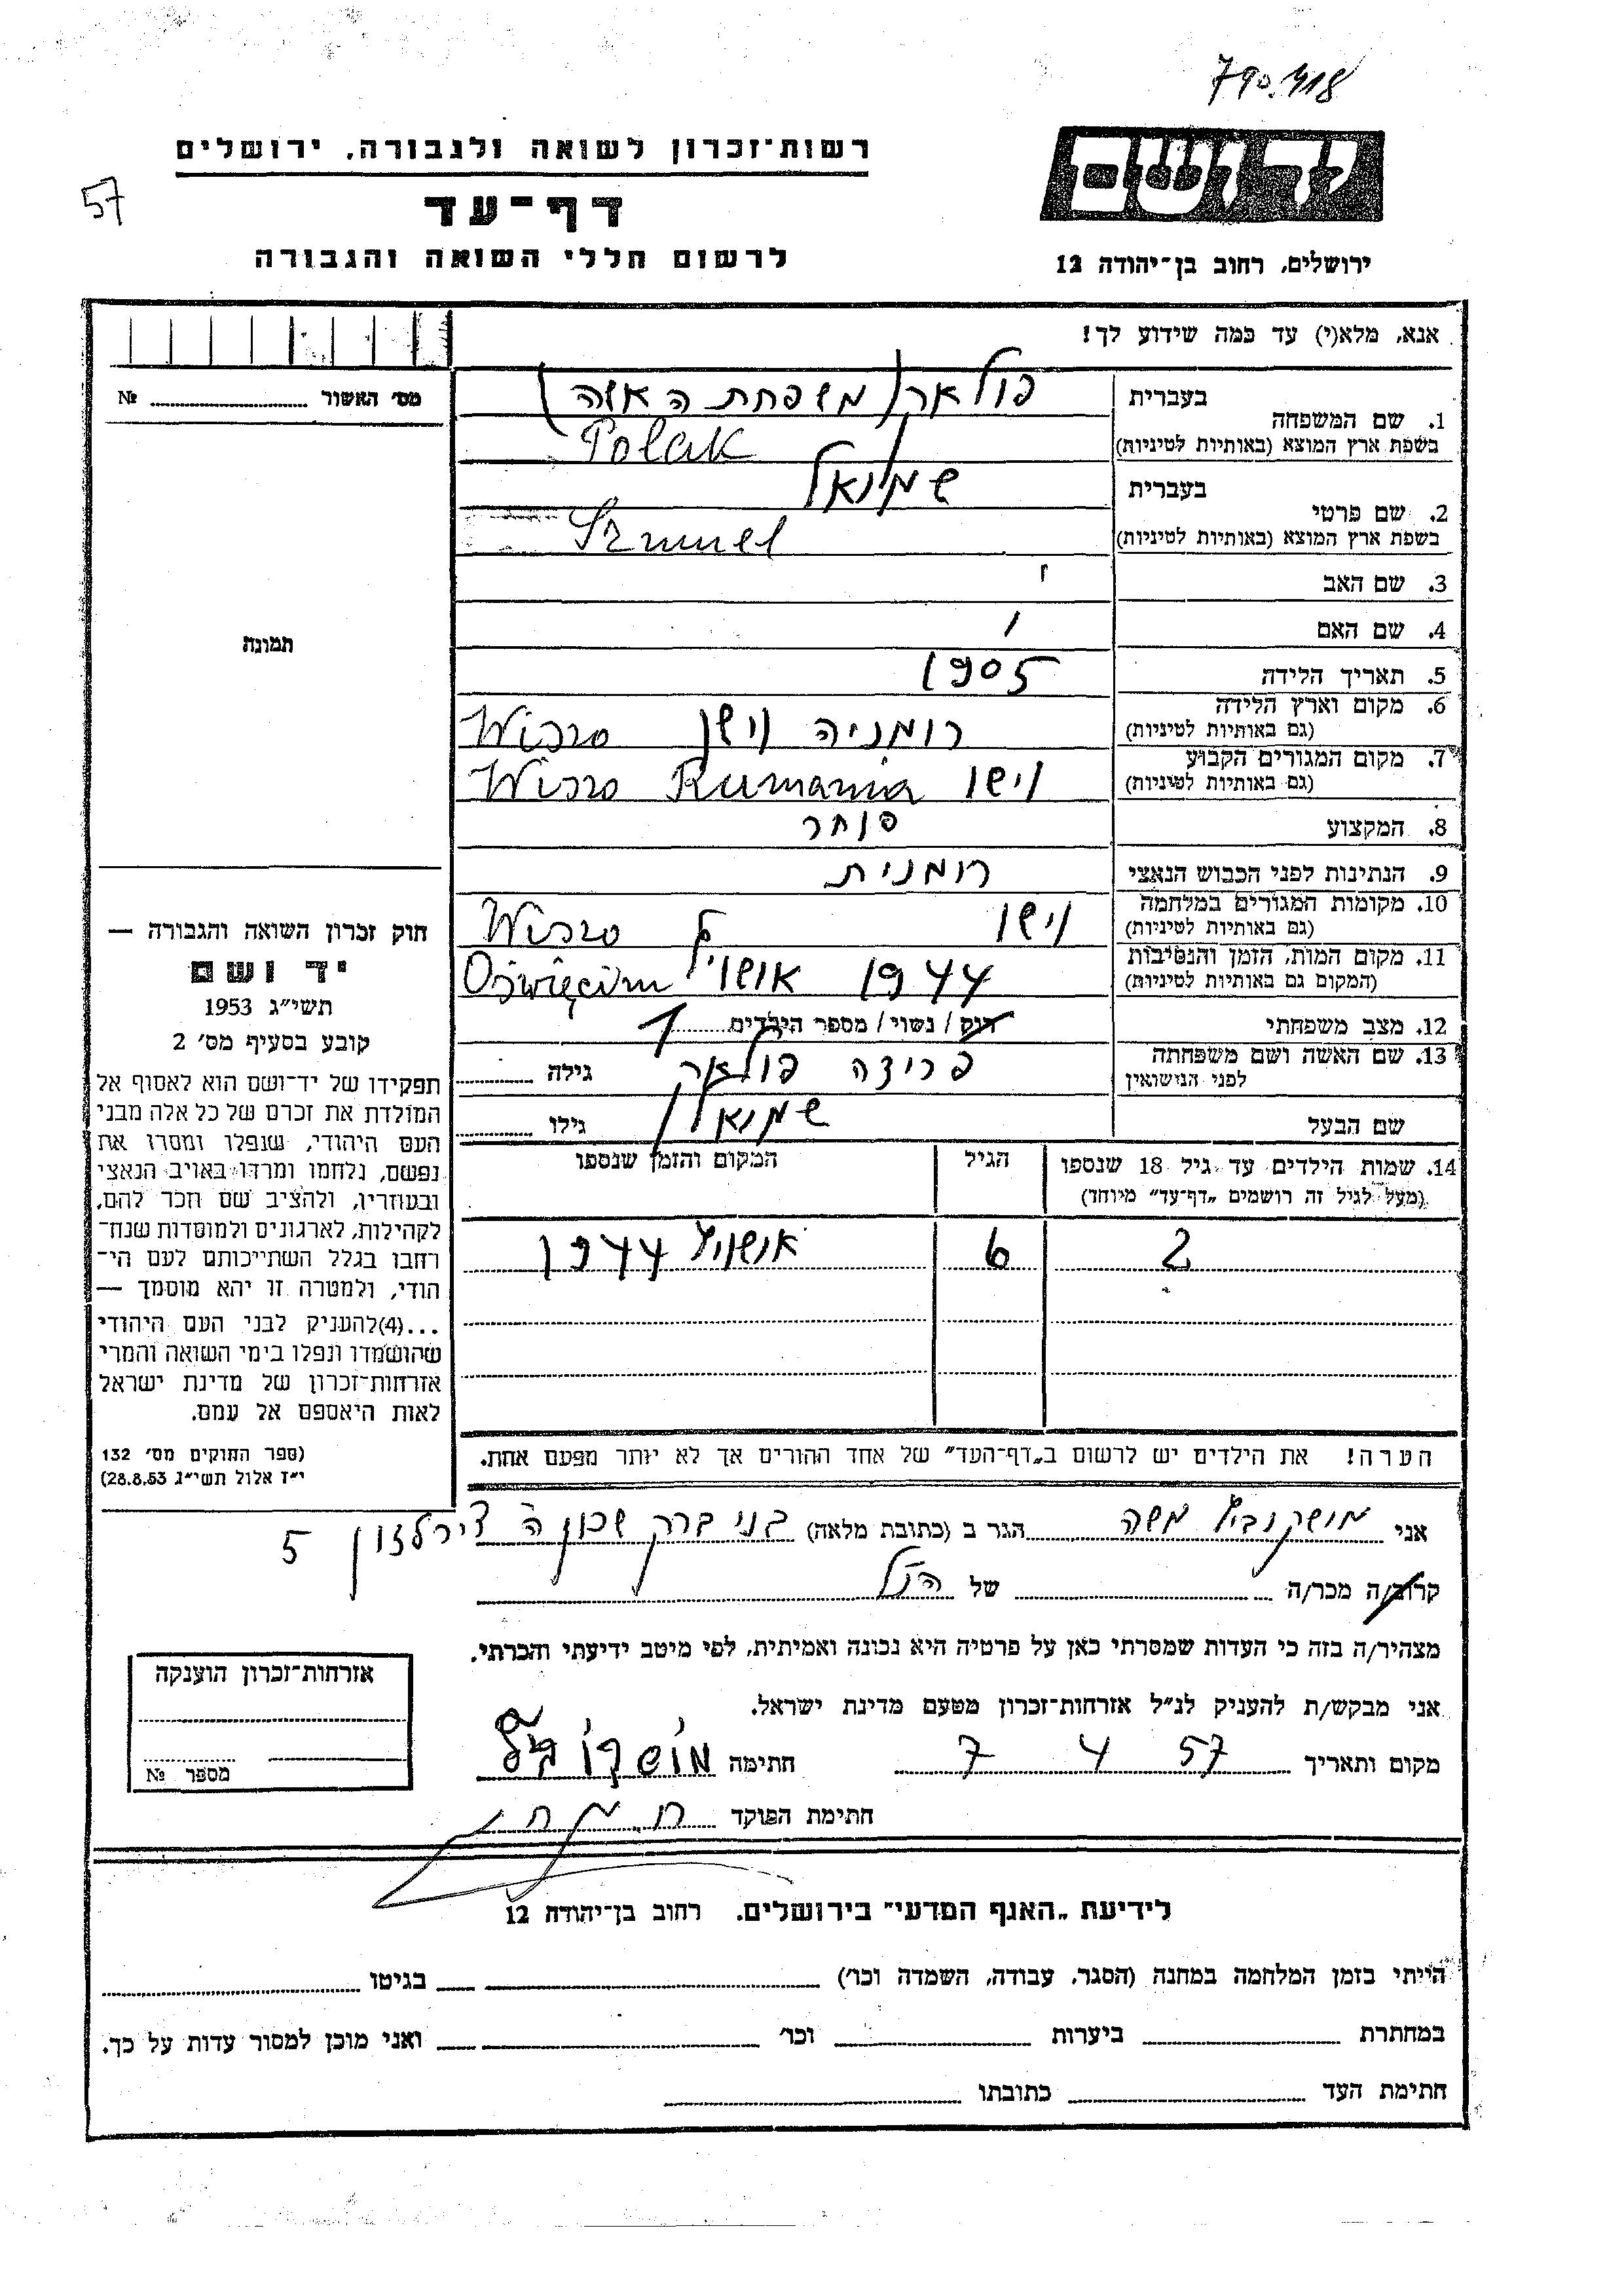 790.418
יד ושם
רשות־זכרון לשואה ולגבורה, ירושלים
57
דף־עד
לרשום חללי השואה והגבורה
ירושלים, רחוב בן־יהודה 12
אנא, מלא(י) עד כמה שידוע לך!
מס׳ האשור № 
1. שם המשפחה
בעברית פולאק (משפחת האשה)
בשפת ארץ המוצא (באותיות לטיניות) Polak
2. שם פרטי
בעברית שמואל
בשפת ארץ המוצא (באותיות לטיניות) Szmuel
3. שם האב
4. שם האם
תמונה
5. תאריך הלידה 1905
6. מקום וארץ הלידה
(גם באותיות לטיניות) רומניה וישו Wiszo
7. מקום המגורים הקבוע
(גם באותיות לטיניות) וישו Rumania Wiszo
8. המקצוע סוחר
9. הנתינות לפני הכבוש הנאצי רומנית
10. מקומות המגורים במלחמה
(גם באותיות לטיניות) וישו Wiszo
11. מקום המות, הזמן והנסיבות
(המקום גם באותיות לטיניות) 1944 אושויץ Oświęcim
12. מצב משפחתי רוק / נשוי / מספר הילדים
13. שם האשה ושם משפחתה
לפני הנישואין פרידה פולאק גילה
שם הבעל שמואל גילו
14. שמות הילדים עד גיל 18 שנספו
(מעל לגיל זה רושמים „דף־עד״ מיוחד)
הגיל
המקום והזמן שנספו
2 6 אושויץ 1944
הערה! את הילדים יש לרשום ב„דף־העד״ של אחד ההורים אך לא יותר מפעם אחת.
חוק זכרון השואה והגבורה —
יד ושם
תשי״ג 1953
קובע בסעיף מס׳ 2
תפקידו של יד־ושם הוא לאסוף אל
המולדת את זכרם של כל אלה מבני
העם היהודי, שנפלו ומסרו את
נפשם, נלחמו ומרדו באויב הנאצי
ובעוזריו, ולהציב שם וזכר להם,
לקהילות, לארגונים ולמוסדות שנח־
רחבו בגלל השתייכותם לעם הי־
הודי, ולמטרה זו יהא מוסמך —
...(4)להעניק לבני העם היהודי
שהושמדו ונפלו בימי השואה והמרי
אזרחות־זכרון של מדינת ישראל
לאות היאספם אל עמם.
(ספר החוקים מס׳ 132
י״ז אלול תשי״ג 28.8.53)
אני מושקוביץ משה הגר ב (כתובת מלאה) בני ברק שכון ה 5
קרוב/ה מכר/ה של הנ״ל
מצהיר/ה בזה כי העדות שמסרתי כאן על פרטיה היא נכונה ואמיתית, לפי מיטב ידיעתי והכרתי.
אני מבקש/ת להעניק לנ״ל אזרחות־זכרון מטעם מדינת ישראל.
מקום ותאריך 57 4 7 חתימה מושקוביץ
חתימת הפוקד
אזרחות־זכרון הוענקה
מספר №
לידיעת „האגף המדעי״ בירושלים. רחוב בן־יהודה 12
הייתי בזמן המלחמה במחנה (הסגר, עבודה, השמדה וכו׳) בגיטו
במחתרת ביערות וכו׳ ואני מוכן למסור עדות על כך.
חתימת העד כתובתו